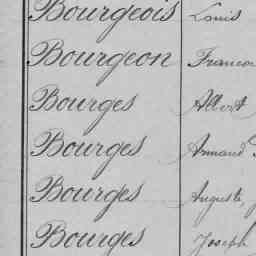 Bourgeois Louis
Bourgeon Francois
Bourges Albert
Bourges Armand
Bourges Auguste,
Bourges Joseph